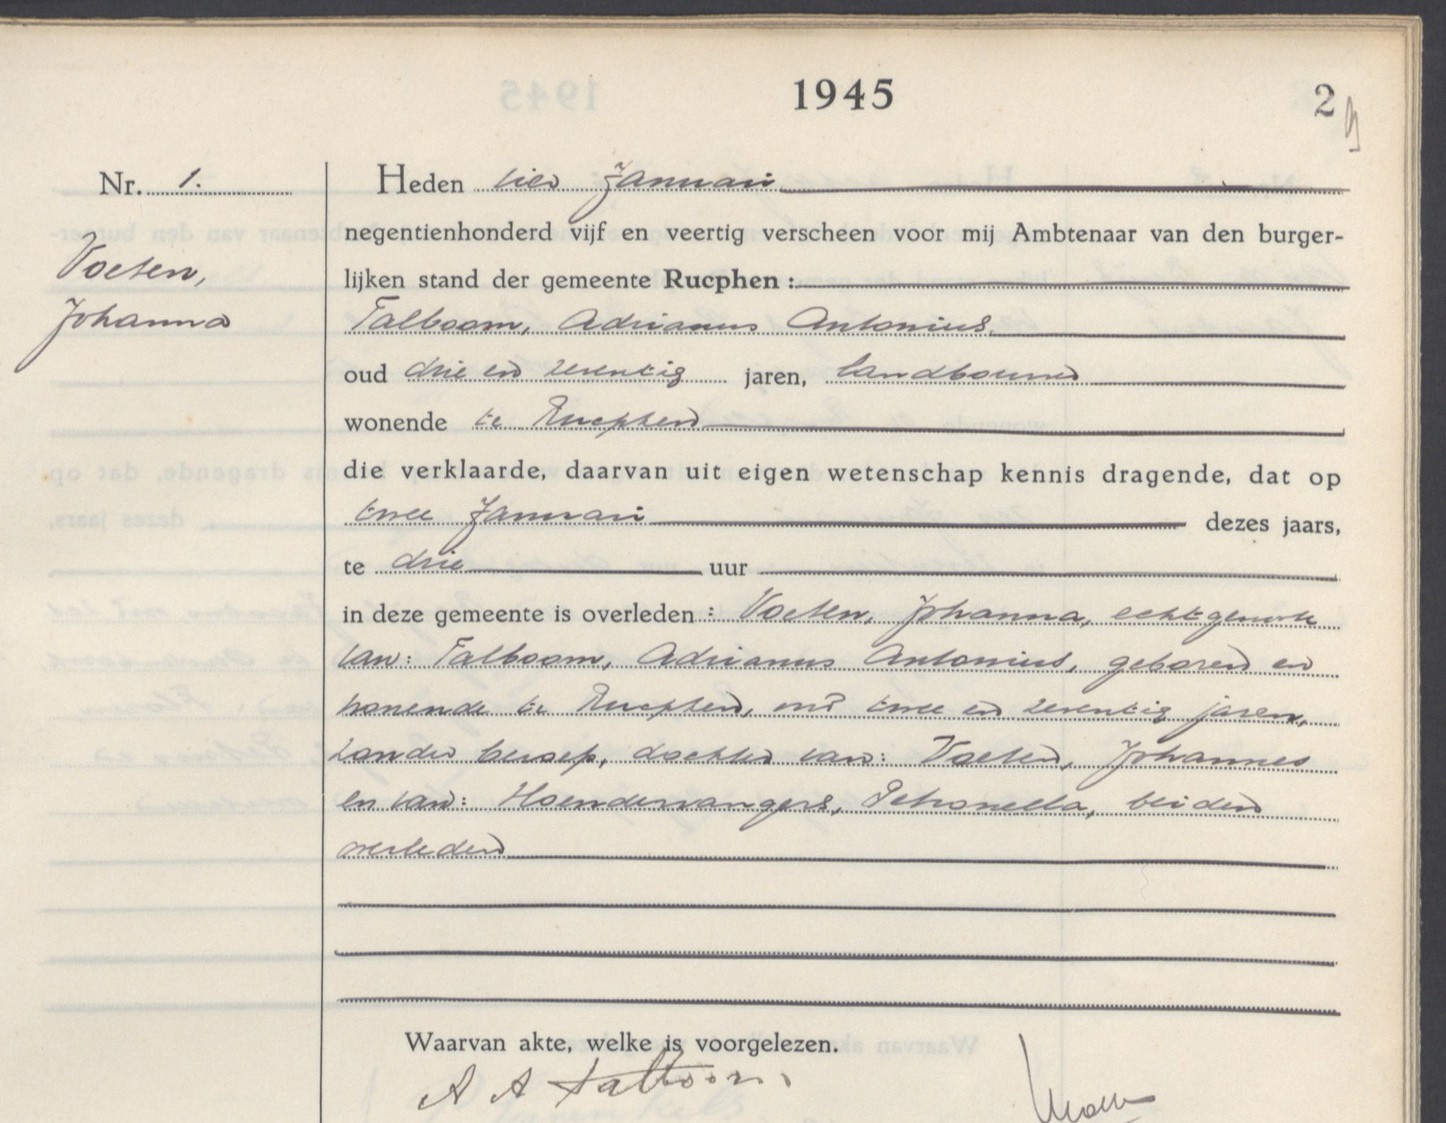 1945
2
Nr. 1.
Voeten,
Johanna
Heden vier Januari
negentienhonderd vijf en veertig verscheen voor mij Ambtenaar van den burger-
lijken stand der gemeente Rucphen :
Talboom, Adrianus Antonius,
oud drie en zeventig jaren, landbouwer
wonende te Rucphen
die verklaarde, daarvan uit eigen wetenschap kennis dragende, dat op
twee Januari dezes jaars,
te drie uur
in deze gemeente is overleden : Voeten, Johanna, echtgenoote
van: Talboom, Adrianus Antonius, geboren en
wonende te Rucphen, oud twee en zeventig jaren,
zonder beroep, dochter van: Voeten, Johannes
en van: Hoendervangers, Petronella, beiden
overleden
Waarvan akte, welke is voorgelezen.
A A Talboom